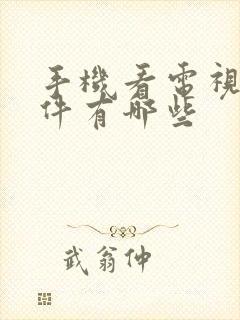 手機看電視
件有哪些
武翁仲